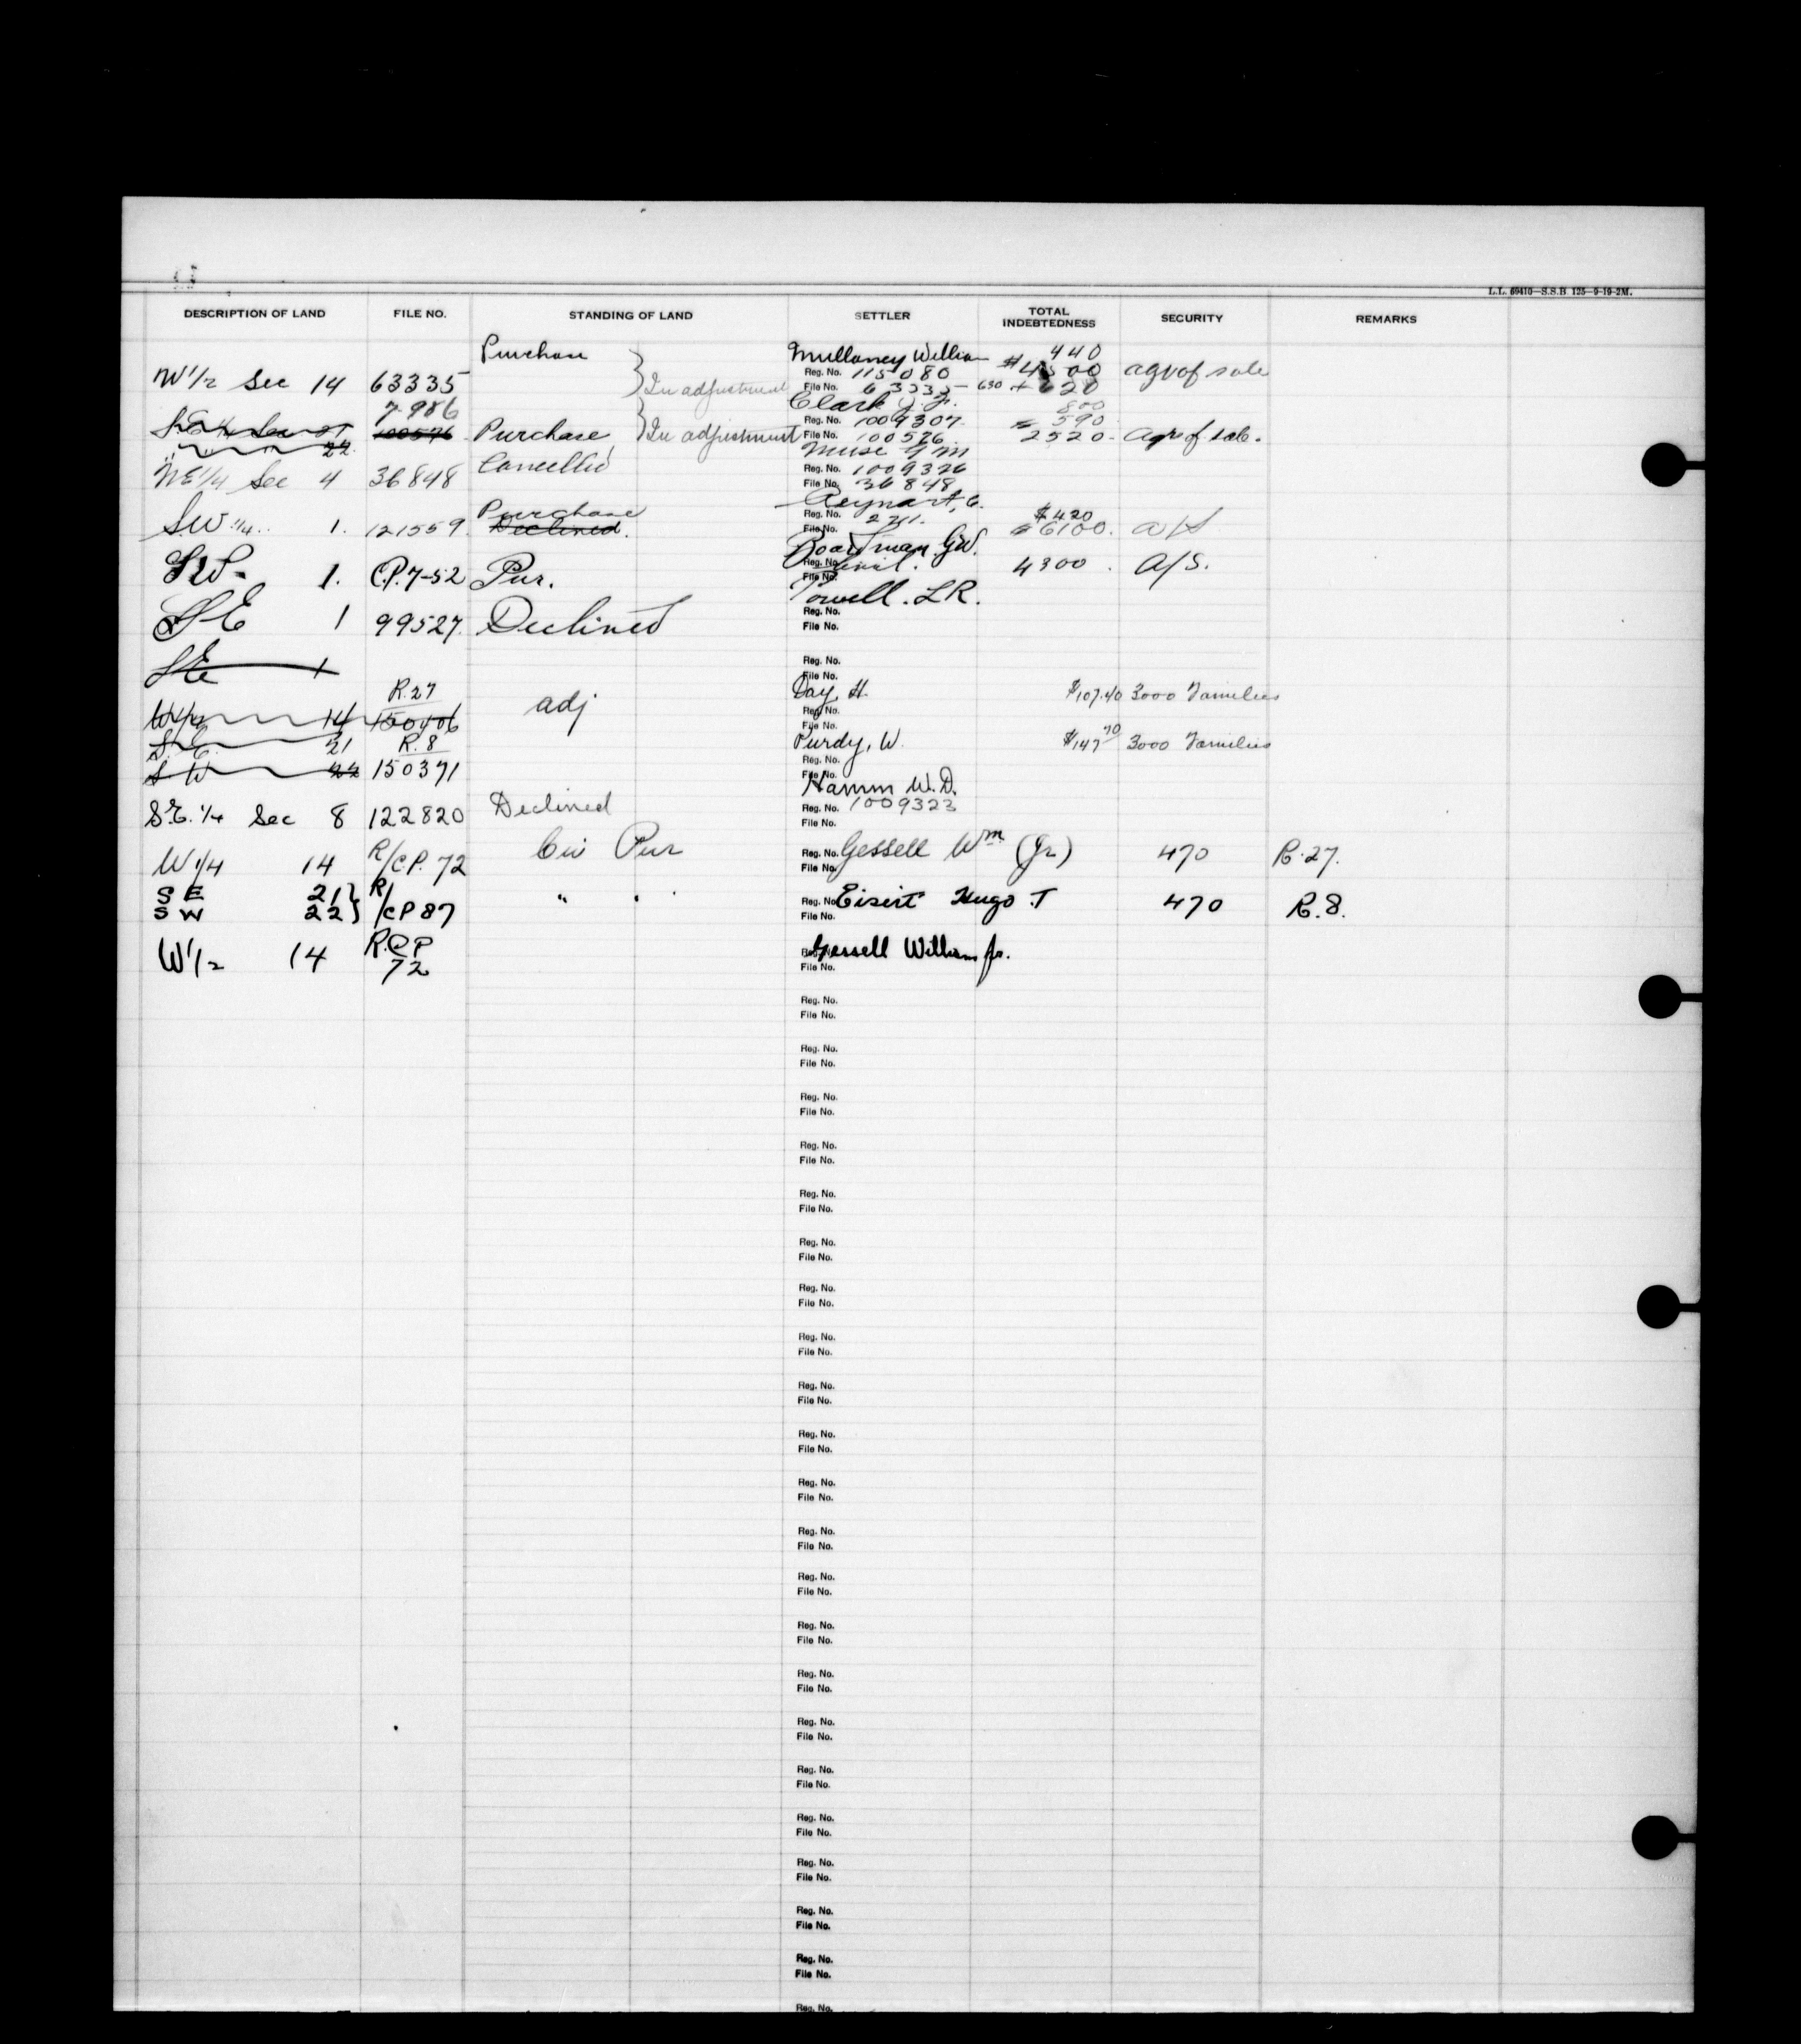 L.L. 69410—S.S.B 125—9-19-2M.
DESCRIPTION OF LAND FILE NO. STANDING OF LAND SETTLER TOTAL INDEBTEDNESS SECURITY REMARKS
Purchase Mullaney William 440
W 1/2 Sec 14 63335 In adjustment Reg. No. 115080 $4500 agr of sale
File No. 63335 630 + 620
7-986 Clark J. J. 800
S.E. 1/4 Sec 21 100576 Purchase In adjustment Reg. No. 1009307 590
22 File No. 100576 2520 agr of sale.
Cancelled Muse
NE 1/4 Sec 4 36848 Reg. No. 1009326
File No. 36848
Purchase Reynart, C. $420
SW 1/4 1. 121559 Declined. Reg. No. 2711. 6100. a/s
File No.
Boardman GW.
SW. 1. C.P.7-52 Pur. Reg. No. Civil. 4300. A/S.
File No.
Powell. L R.
SE 1 99527 Declined Reg. No.
File No.
SE 1 Reg. No.
File No.
R.27 adj Day, H. $107.40 3000 Families
W 1/2 14 150406 Reg. No.
File No.
S.E. 21 R.8 Purdy, W. $147 70 3000 Families
S.W 22 150371 Reg. No.
File No.
Hamm W.D.
S.E. 1/4 Sec 8 122820 Declined Reg. No. 1009323
File No.
W 1/4 14 R/CP. 72 Civ Pur Reg. No. Gessell Wm (Jr) 470 R.27.
File No.
SE 21 } R/ " " Reg. No. Eisert Hugo T 470 R.8.
SW 22 } /CP 87 File No.
W 1/2 14 R.CP Reg. No. Gessell William Jr.
72 File No.
Reg. No.
File No.
Reg. No.
File No.
Reg. No.
File No.
Reg. No.
File No.
Reg. No.
File No.
Reg. No.
File No.
Reg. No.
File No.
Reg. No.
File No.
Reg. No.
File No.
Reg. No.
File No.
Reg. No.
File No.
Reg. No.
File No.
Reg. No.
File No.
Reg. No.
File No.
Reg. No.
File No.
Reg. No.
File No.
Reg. No.
File No.
Reg. No.
File No.
Reg. No.
File No.
Reg. No.
File No.
Reg. No.
File No.
Reg. No.